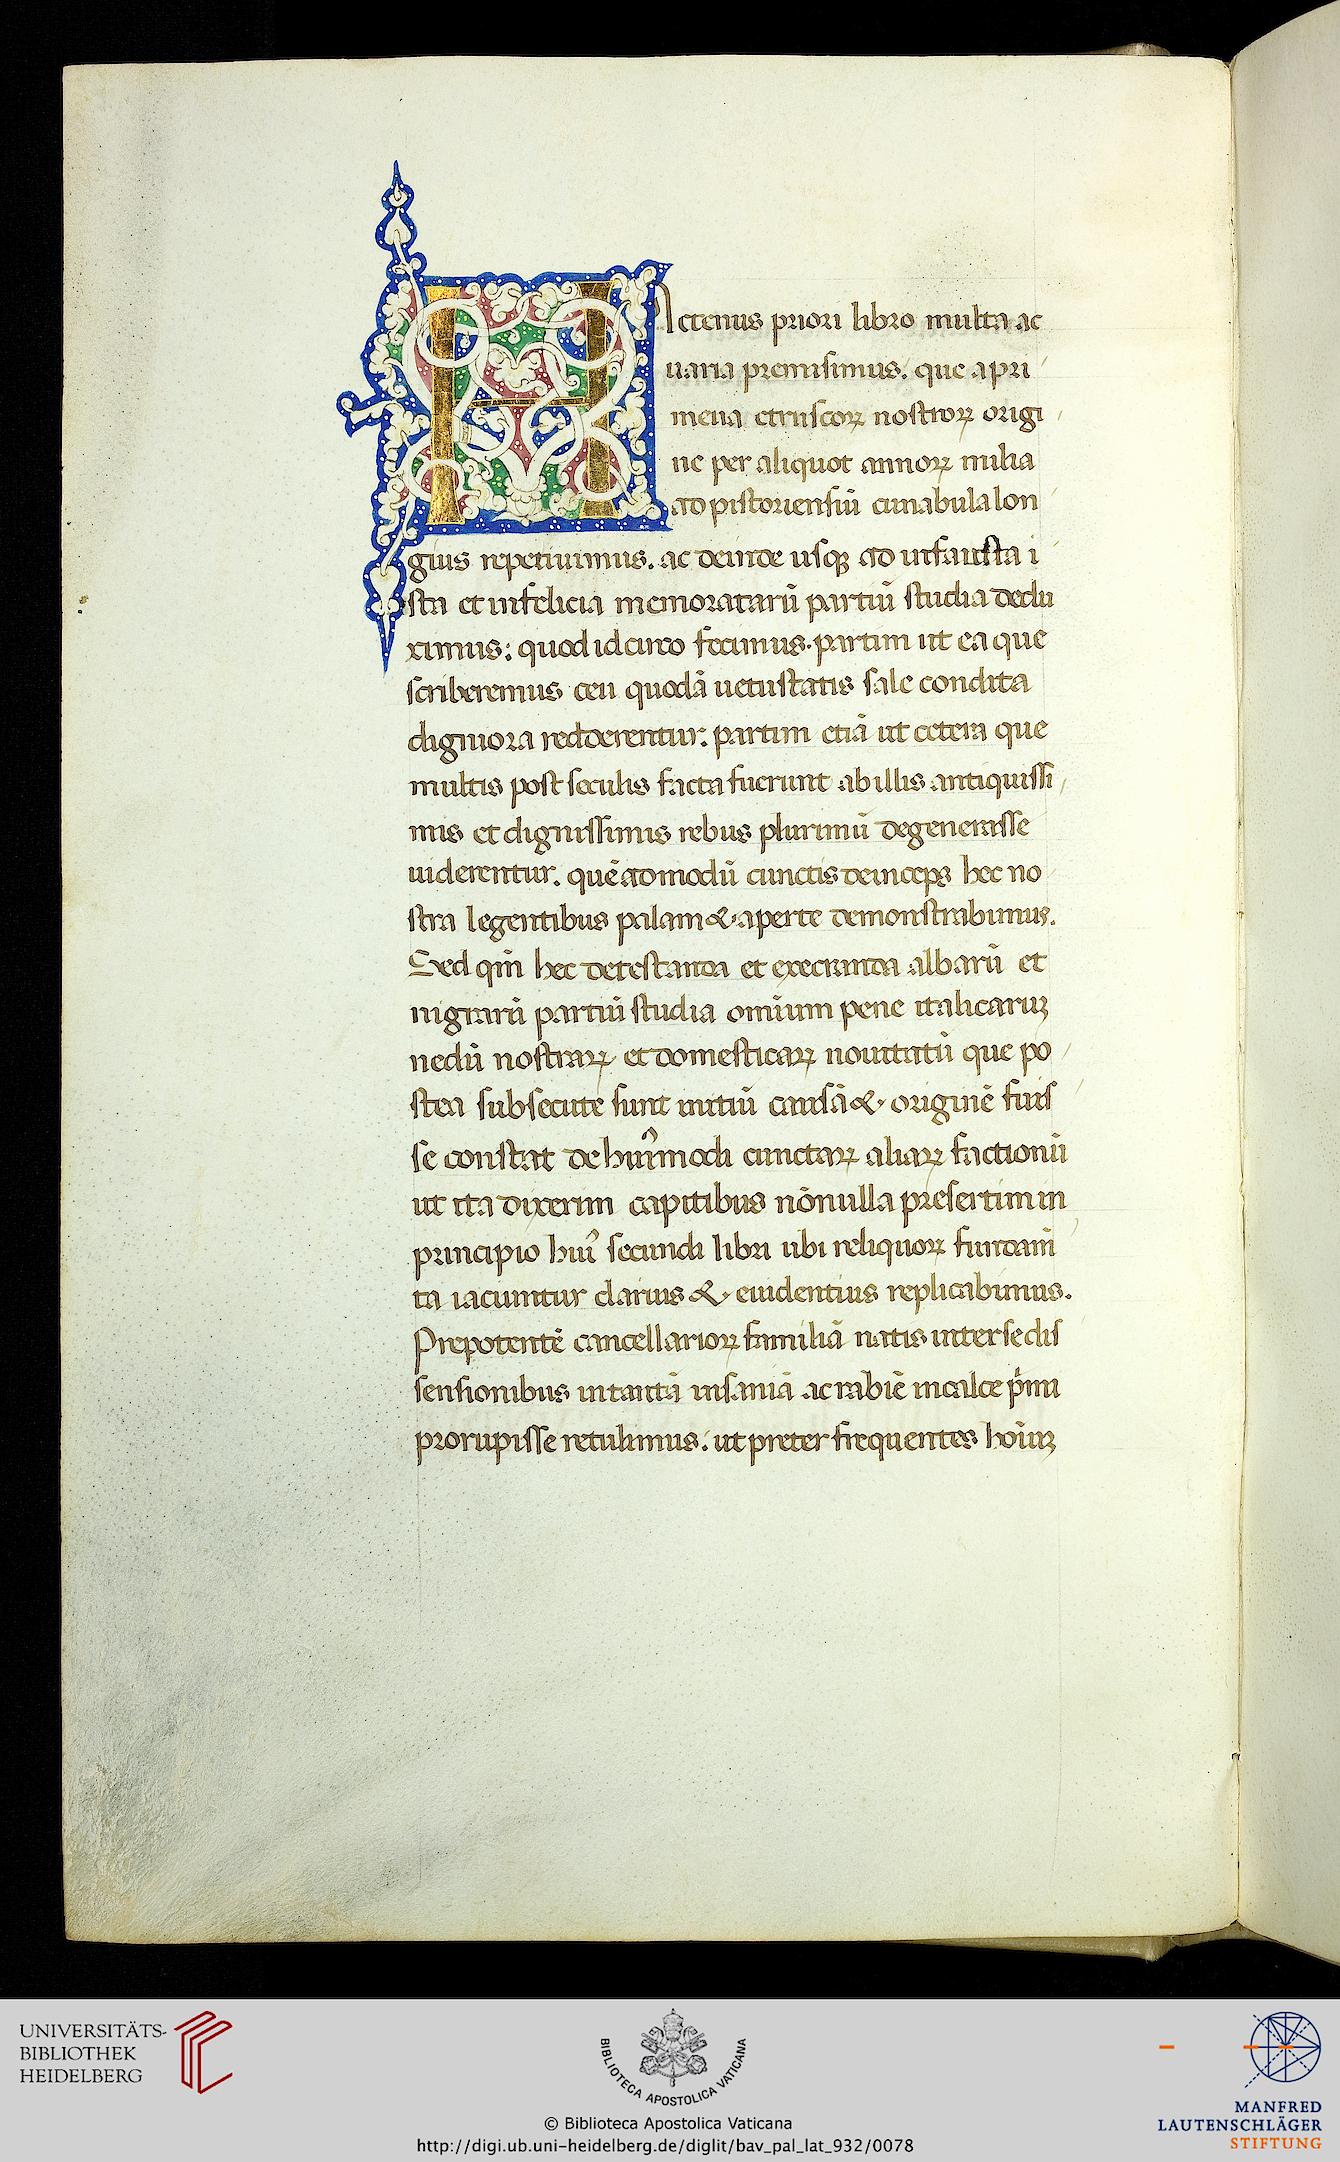 HActenus priori libro multa ac
uaria premisimus. que a pri
meua etruscoꝝ nostroꝝ origi
ne per aliquot annoꝝ milia
ad pistoriensiū cunabula lon
gius repetiuimus. ac deinde usqꝫ ad infausta i
sta et infelicia memoratarū partiū studia dedu
ximus: quod idcirco fecimus. partim ut ea que
scriberemus ceu quodā uetustatis sale condita
digniora redderentur. partim etiā ut cetera que
multis post seculis facta fuerunt ab illis antiquissi
mis et dignissimis rebus plurimū degenerasse
uiderentur. quēadmodū cunctis deinceps hec no
stra legentibus palam & aperte demonstrabimus.
Sed qm̄ hec detestanda et execranda albarū et
nigrarū partiū studia omīum pene italicaruꝫ
nedū nostraꝝ et domesticaꝝ nouitatū que po
stea subsecute sunt initiū causā & originē fuis
se constat de huīꝰmodi cunctaꝝ aliaꝝ factionū
ut ita dixerim capitibus nōnulla presertim in
principio huīꝰ secundi libri ubi reliquoꝝ fundam̄
ta iacuntur clarius & euidentius replicabimus.
Prepotentē cancellarioꝝ familiā natis inter se dis
sensionibus in tantā insaniā ac rabiē in calce pͥmi
prorupisse retulimus. ut preter frequentes hoīuꝫ
UNIVERSITÄTS-
BIBLIOTHEK
HEIDELBERG
BIBLIOTECA APOSTOLICA VATICANA
© Biblioteca Apostolica Vaticana
http://digi.ub.uni-heidelberg.de/diglit/bav_pal_lat_932/0078
MANFRED
LAUTENSCHLÄGER
STIFTUNG